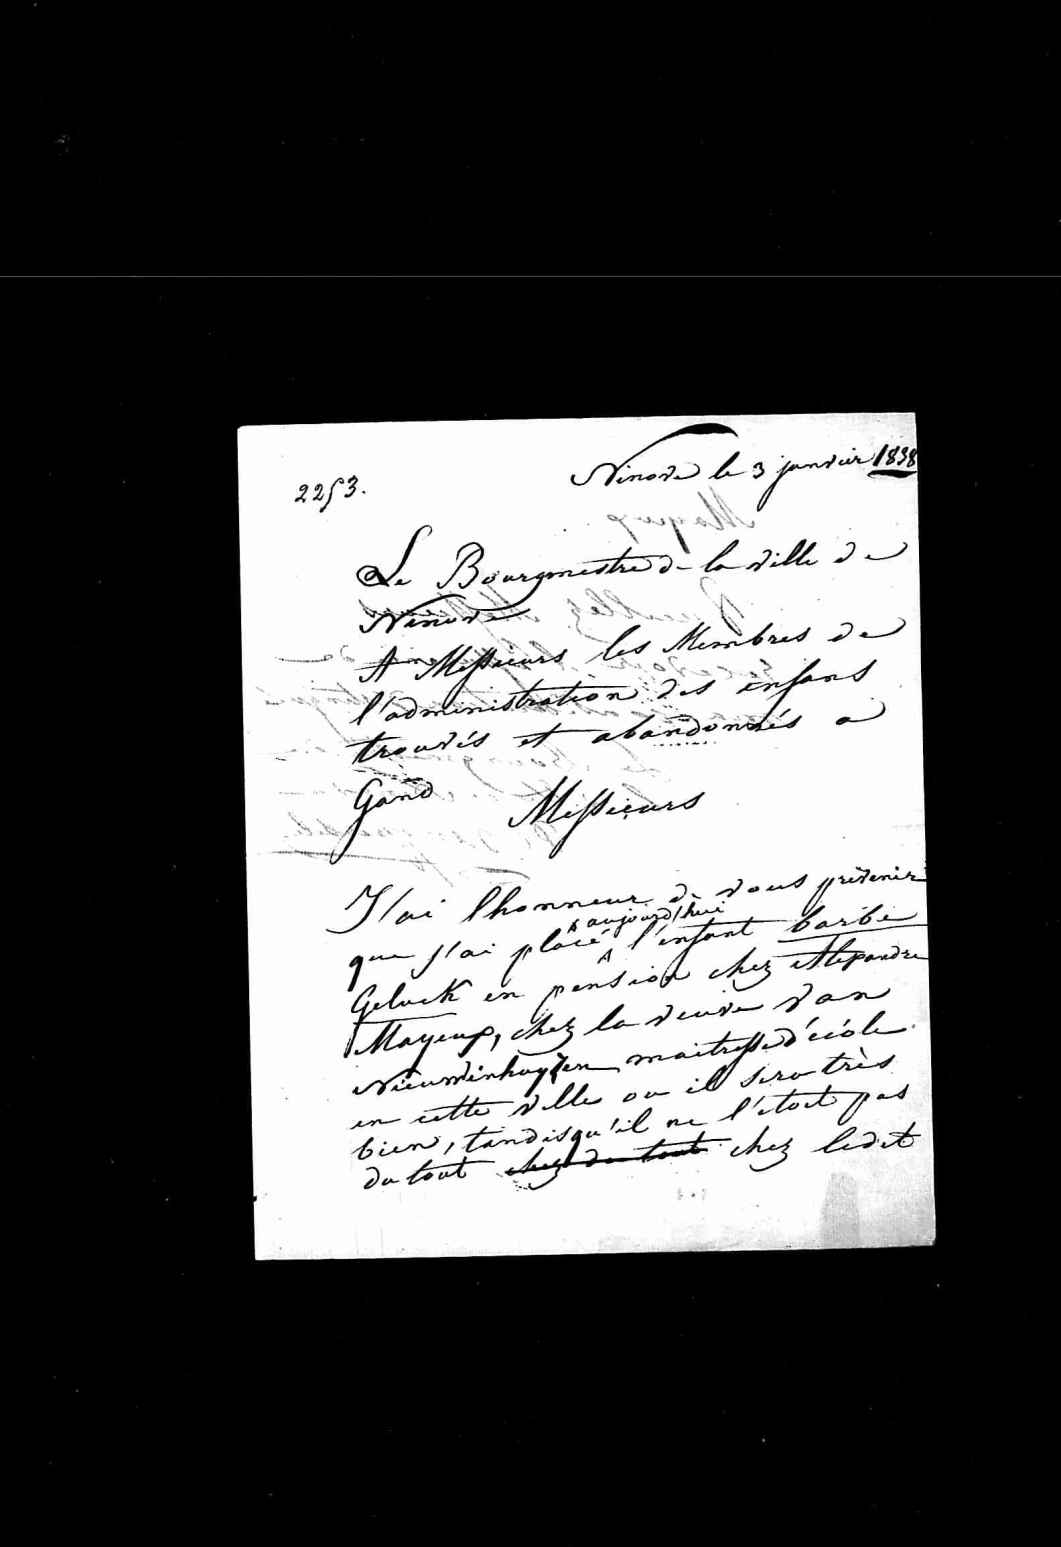 2253.
Ninove le 3 janvier 1838
Le Bourgmestre de la ville de
Ninove
A Messieurs les Membres de
l'administration des enfans
trouvés et abandonnés a
Gand
Messieurs
J'ai l'honneur de vous prévenir
aujourd'hui
que j'ai placé l'enfant barbe
Geluck en pension chez Alexandre
Mayeux, chez la veuve Van
Nieuwenhuysen maitresse d'école
en cette ville ou il sera très
bien, tandis qu'il ne l'étoit pas
du tout chez du tout chez ledit